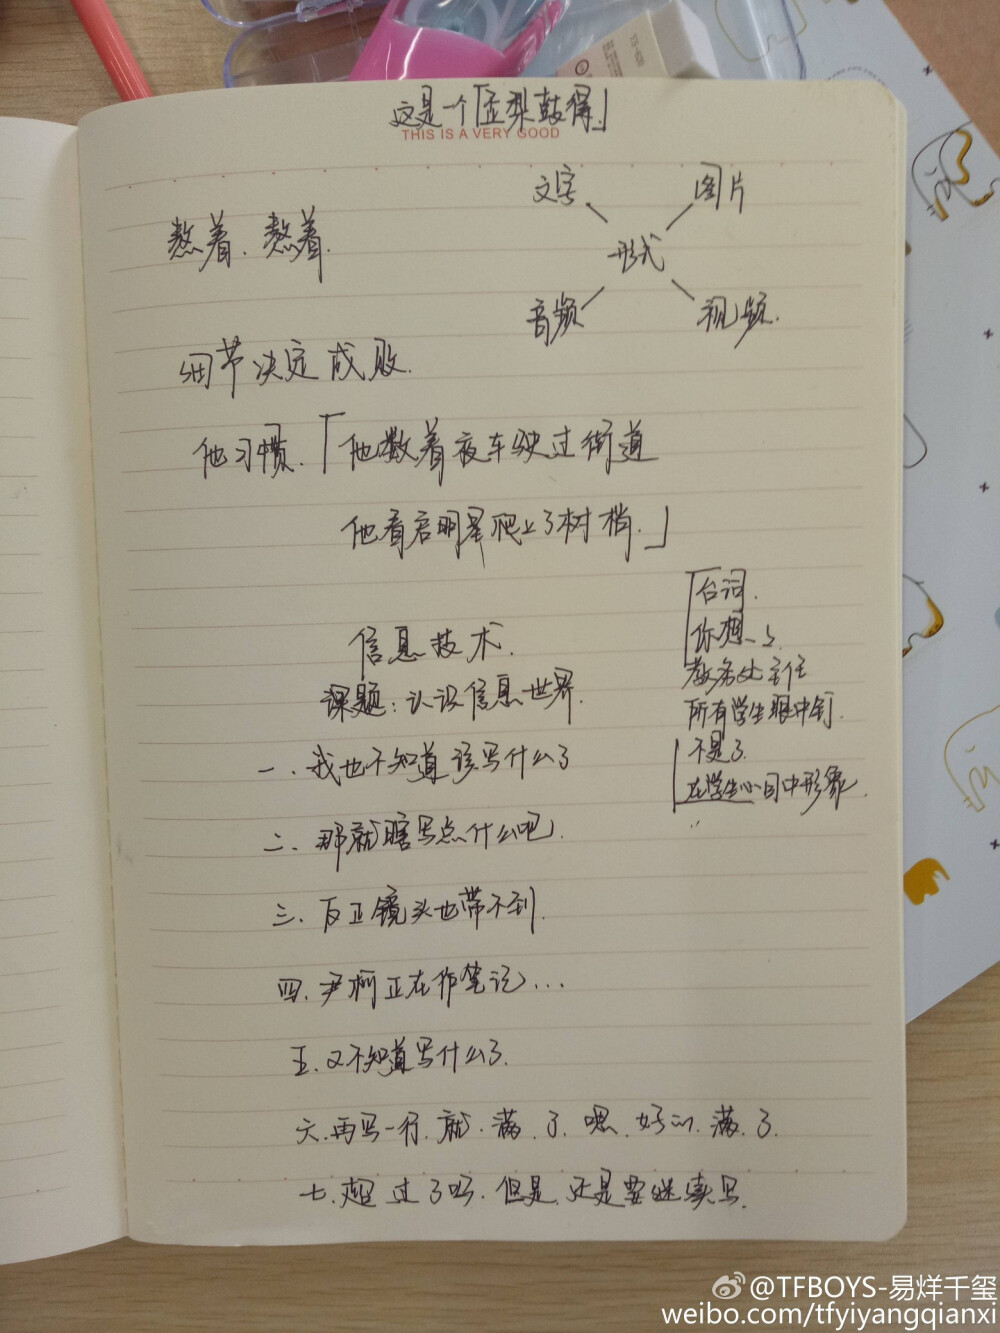 这是一个「歪梨鼓得」
THIS IS A VERY GOOD
文字 图片
形式
音频 视频.
熬着、熬着.
细节决定成败.
他习惯.「他数着夜车驶过街道
他看启明星爬上了树梢.」
信息技术.
课题:认识信息世界.
一、我也不知道该写什么了
二、那就瞎写点什么吧.
三、反正镜头也带不到.
四、尹柯正在作笔记...
五、又不知道写什么了.
六.再写一行.就.满.了.嗯.好的.满.了.
七.超过了吗.但是.还是要继续写.
台词.
你想
教务处主任
所有学生眼中钉.
不是了
在学生心目中形象.
@TFBOYS-易烊千玺
weibo.com/tfyiyangqianxi